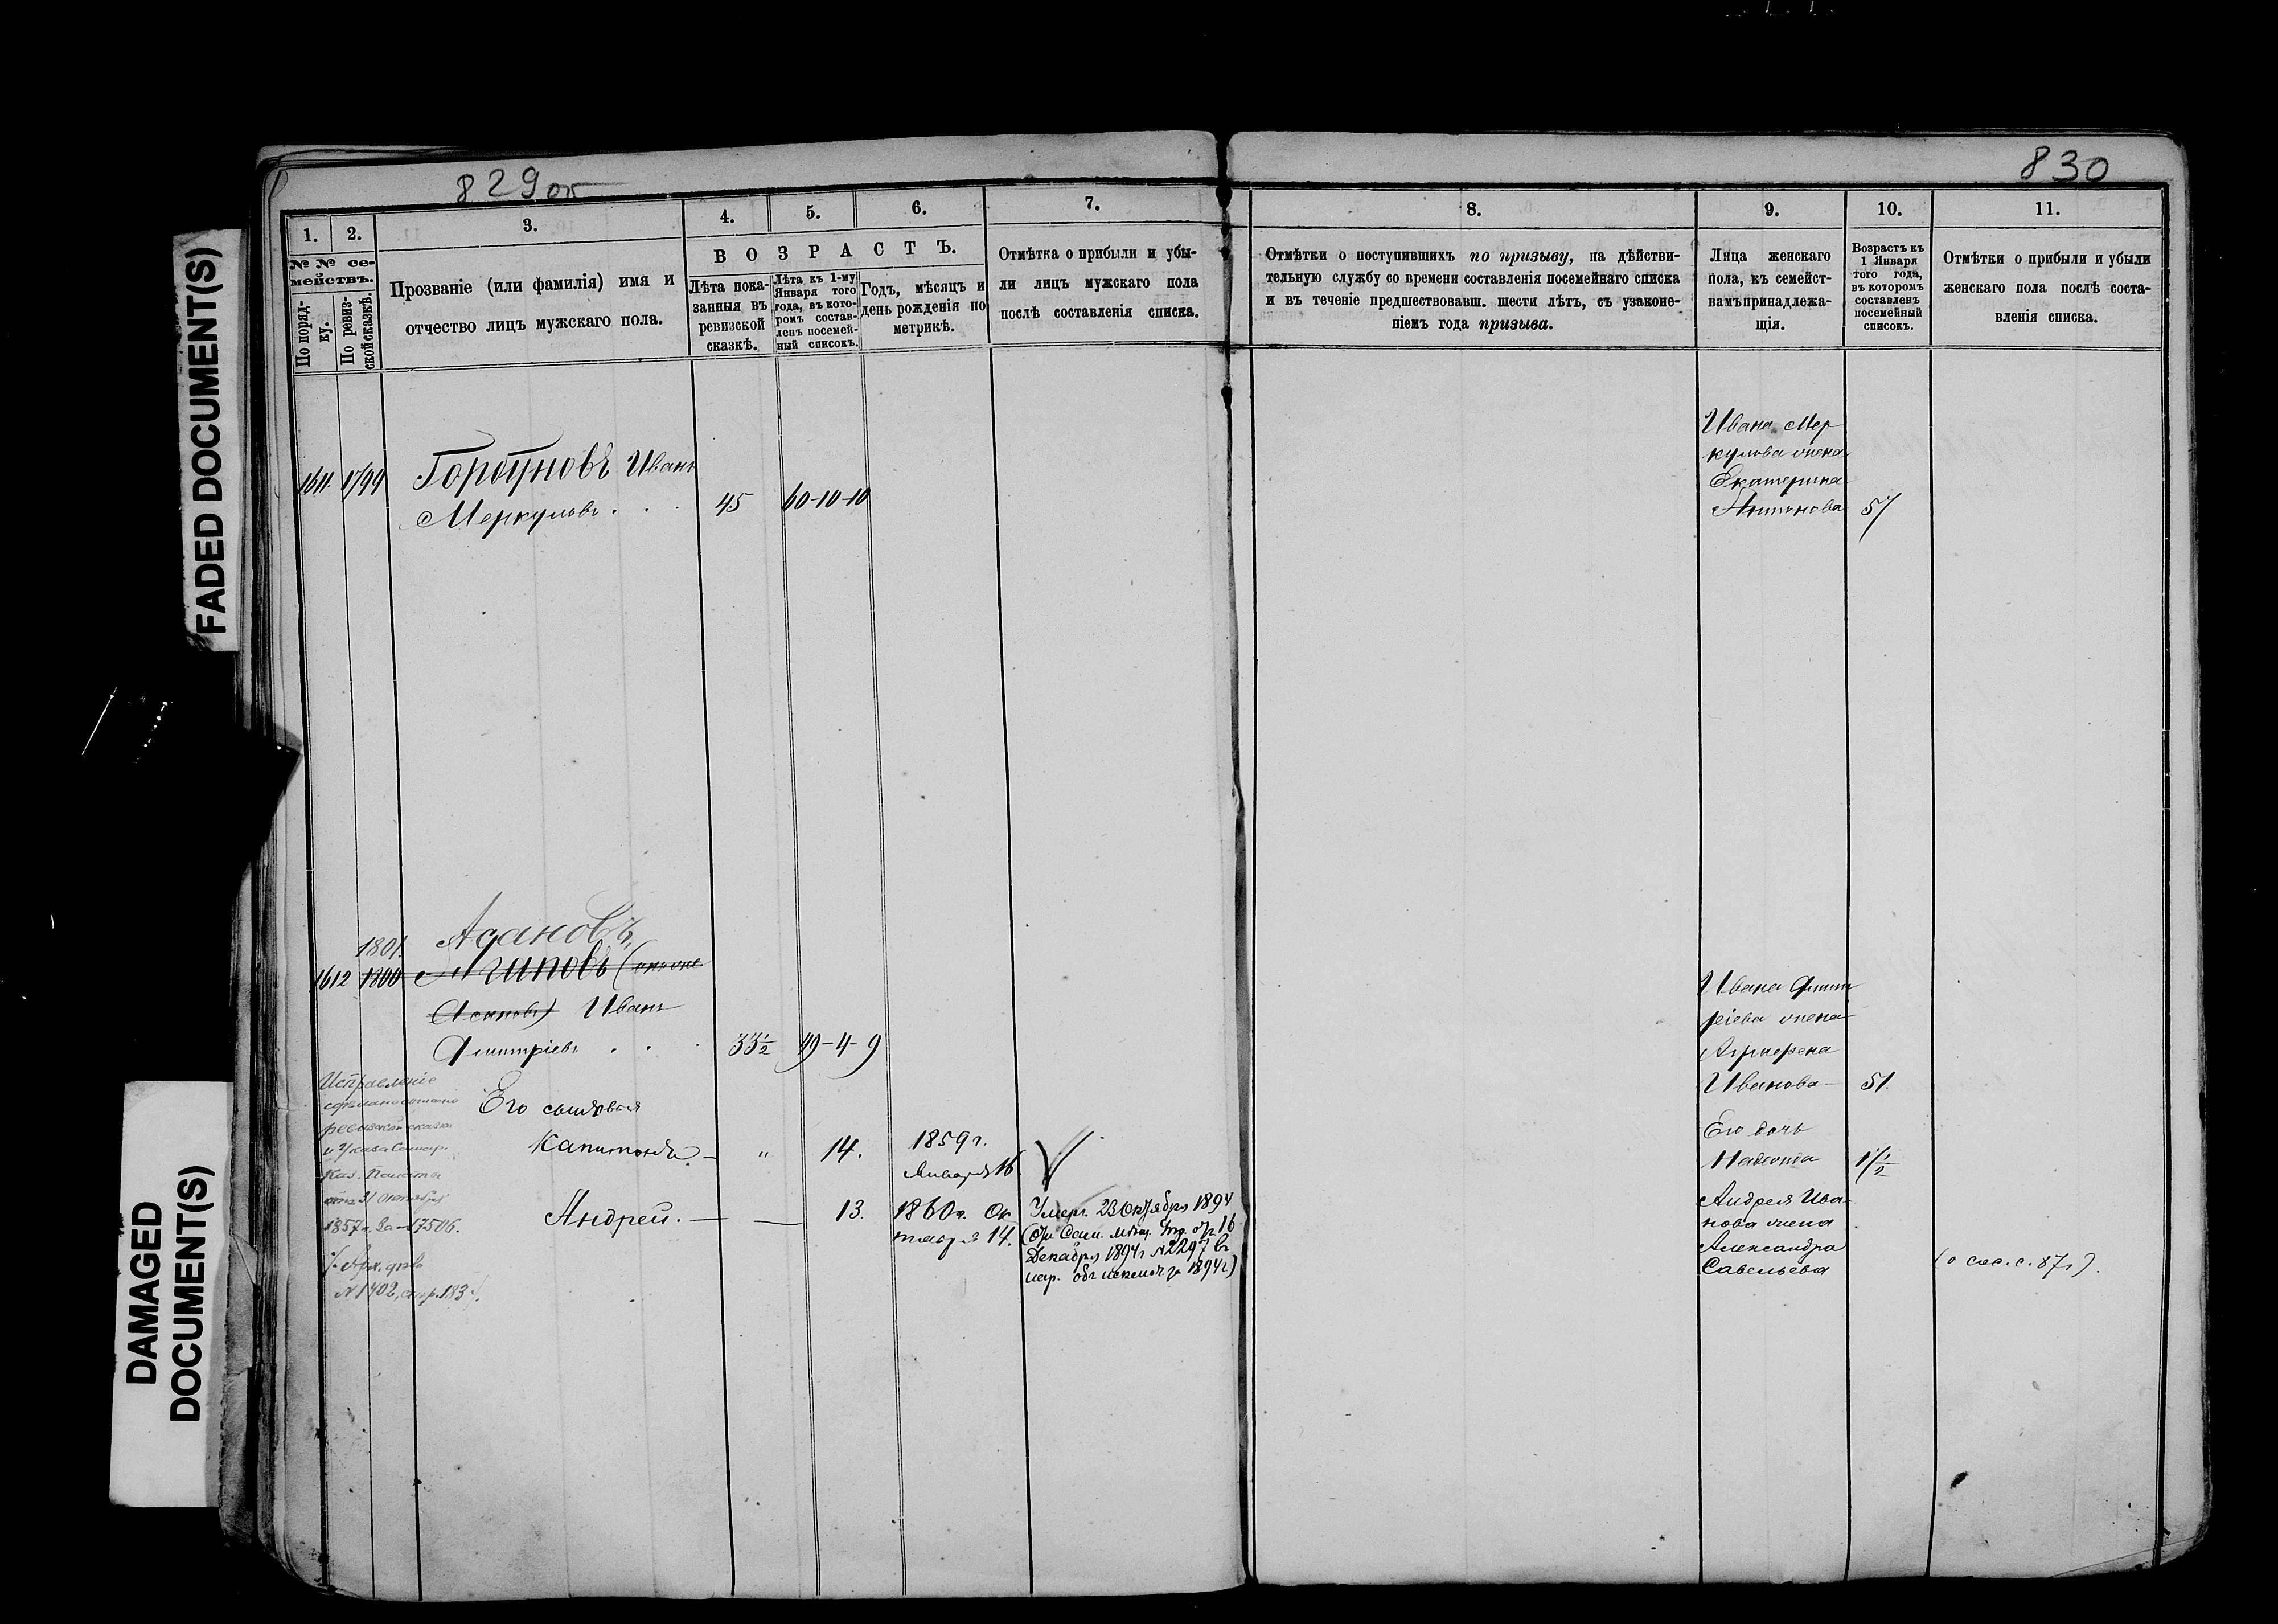 829об
830
FADED DOCUMENT(S)
DAMAGED
DOCUMENT(S)
1.
2.
3.
4.
5.
6.
7.
№ № се-
мействъ.
По поряд-
ку.
По ревиз-
ской сказкѣ.
Прозваніе (или фамилія) имя и
отчество лицъ мужскаго пола.
ВОЗРАСТЪ.
Лѣта пока-
занныя въ
ревизской
сказкѣ.
Лѣта къ 1-му
Января того
года, въ кото-
ромъ состав-
ленъ посемей-
ный списокъ.
Годъ, мѣсяцъ и
день рожденія по
метрикѣ.
Отмѣтка о прибыли и убы-
ли лицъ мужскаго пола
послѣ составленія списка.
1611 1799 Горбуновъ Иванъ
Меркуловъ . . . 45 60-10-10
1801. Асановъ
1612 1800
Иванъ
Дмитріевъ . . . 33½ 49-4-9
Исправленіе
Его сыновья
Капитонъ — " 14. 1859 г.
Января 16
Андрей. — — 13. 1860 г. Ок
тября 14.
Умеръ 23 Октября 1894
Декабря 1894 г № 2297 въ
1857 г. за № 17506.
№ 1402, стр. 183
8.
9.
10.
11.
Отмѣтки о поступившихъ по призыву, на дѣйстви-
тельную службу со времени составленія посемейнаго списка
и въ теченіе предшествовавш. шести лѣтъ, съ узаконе-
ніемъ года призыва.
Лица женскаго
пола, къ семейст-
вамъ принадлежа-
щія.
Возрастъ къ
1 Января
того года,
въ которомъ
составленъ
посемейный
списокъ.
Отмѣтки о прибыли и убыли
женскаго пола послѣ соста-
вленія списка.
Ивана Мер
кулова жена
Екатерина
Антонова 57
Ивана Дмит
ріева жена
Агрипена
Иванова — 51.
Его дочь
Андрея Ива-
нова жена
Александра
Савельева